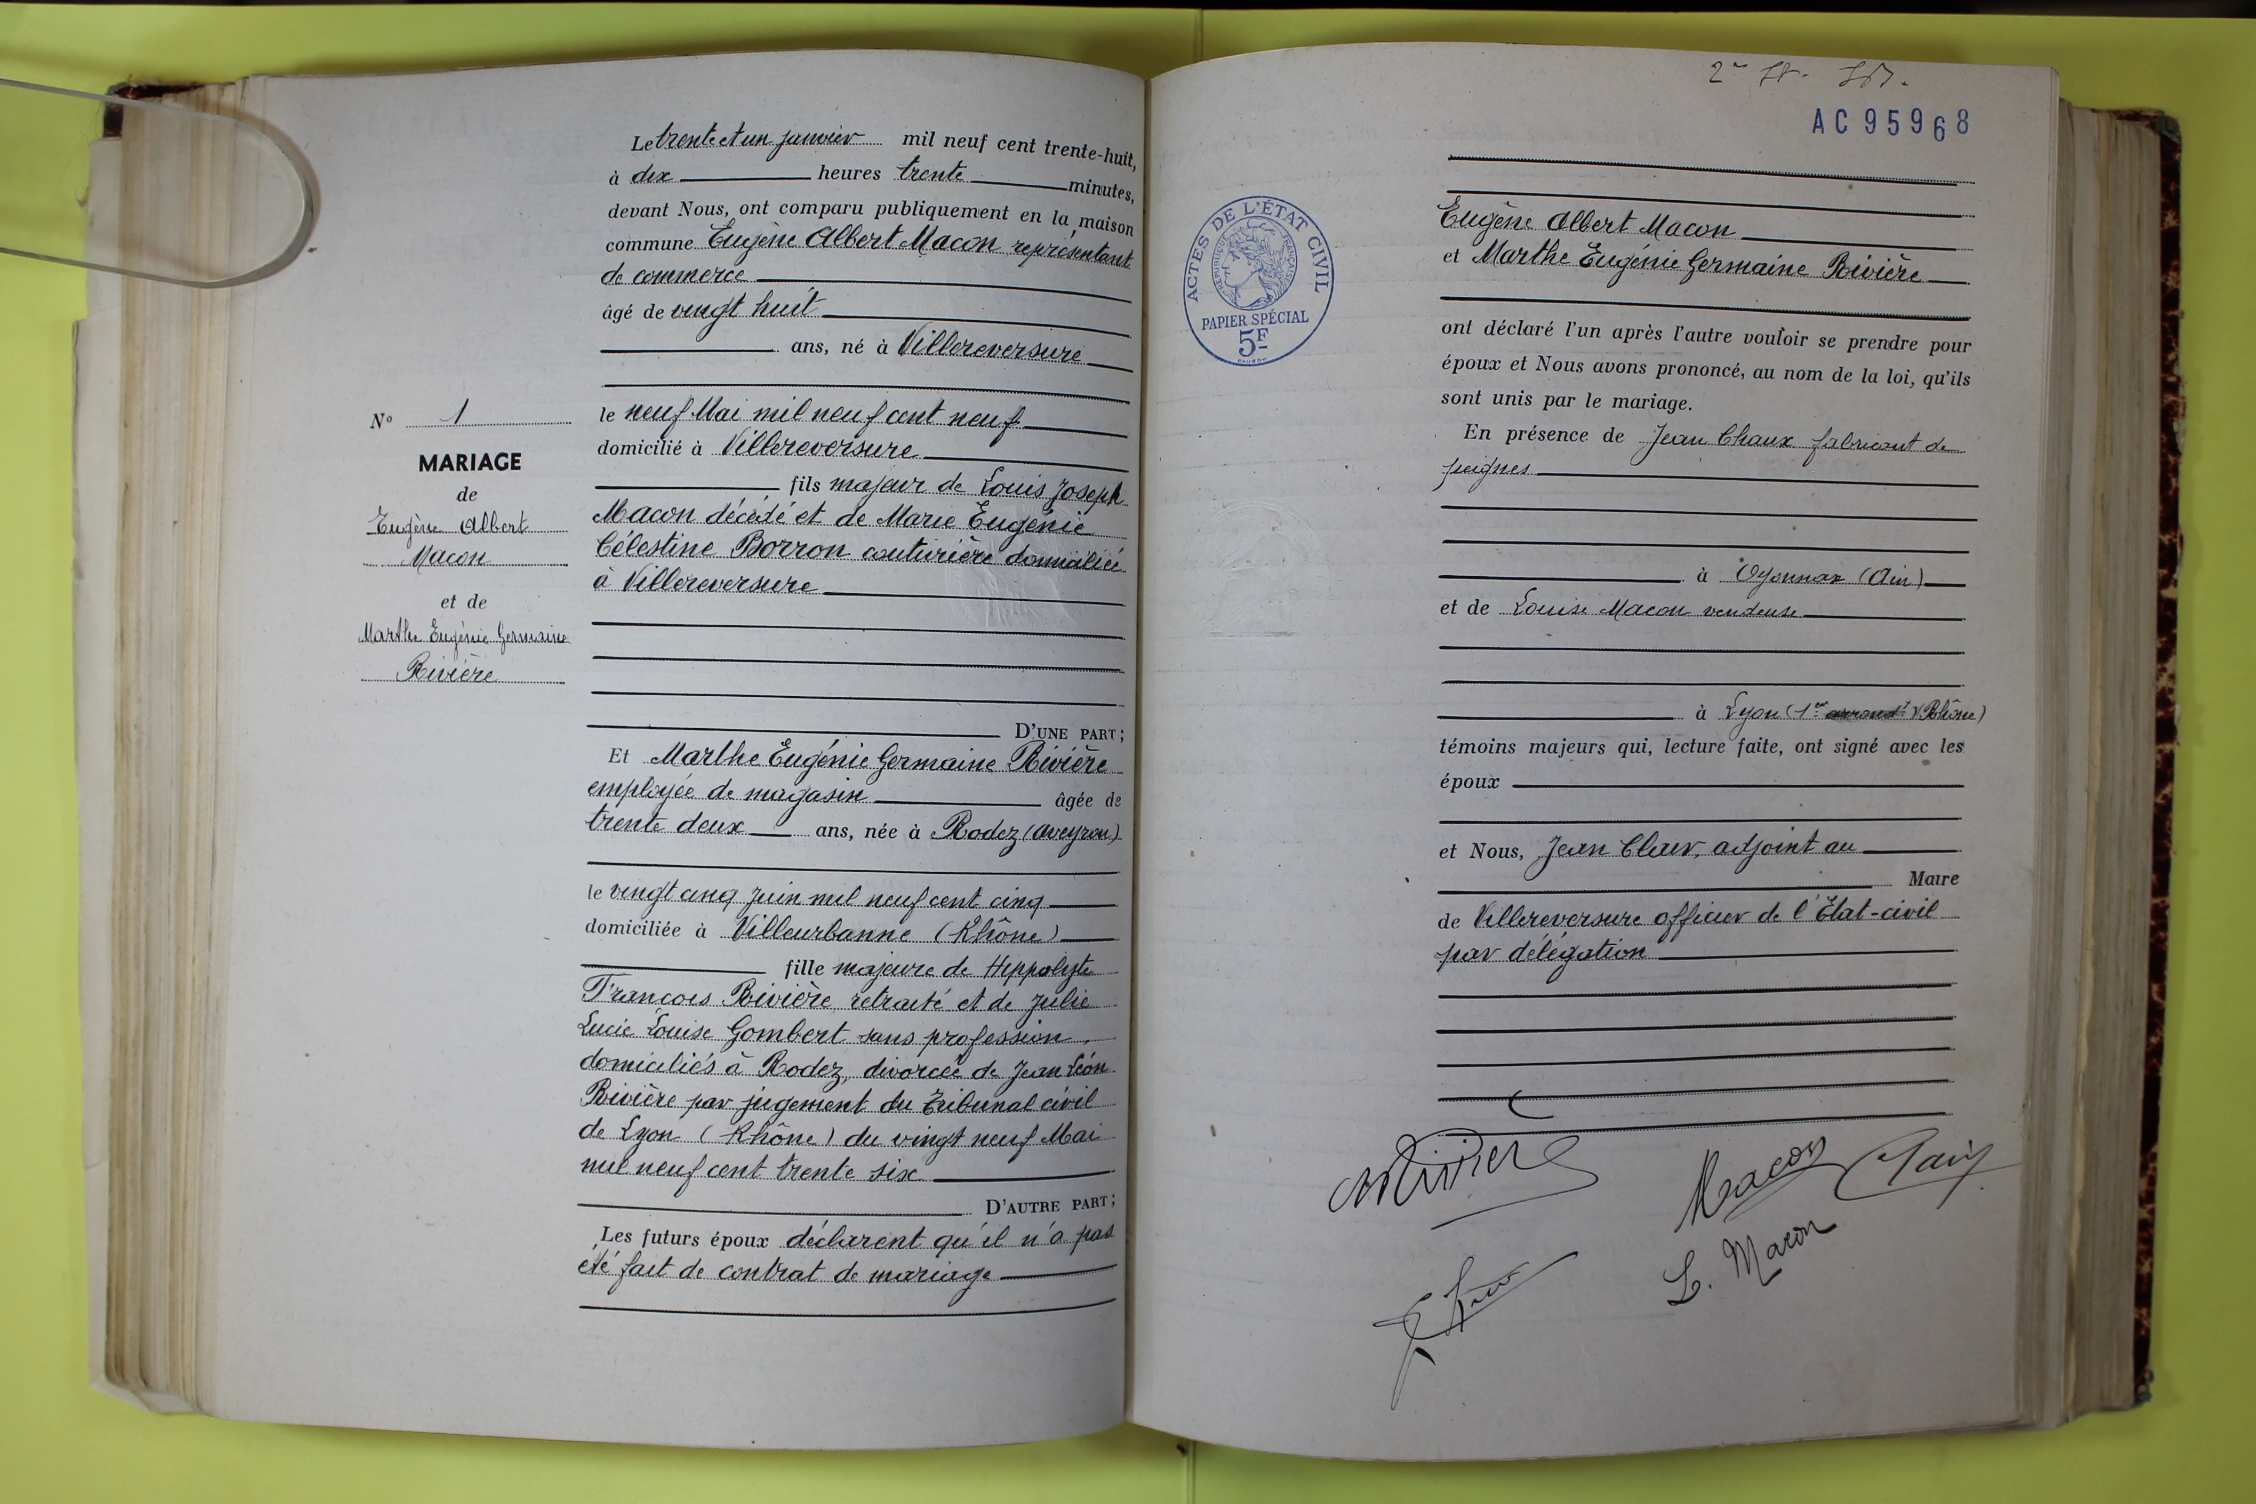 Le trente et un janvier mil neuf cent trente-huit,
à dix heures trente minutes,
devant Nous, ont comparu publiquement en la maison
commune Eugène Albert Macon représentant
de commerce
âgé de vingt huit
ans, né à Villereversure
le neuf Mai mil neuf cent neuf
domicilié à Villereversure
fils majeur de Louis Joseph
Macon décédé et de Marie Eugénie
Célestine Borron couturière domiciliée
à Villereversure
D'UNE PART;
Et Marthe Eugénie Germaine Rivière
employée de magasin âgée de
trente deux ans, née à Rodez (Aveyron)
le vingt cinq juin mil neuf cent cinq
domiciliée à Villeurbanne (Rhône)
fille majeure de Hippolyte
François Rivière retraité et de Julie
Lucie Louise Gombert sans profession,
domiciliés à Rodez, divorcée de Jean Léon
Rivière par jugement du Tribunal civil
de Lyon (Rhône) du vingt neuf Mai
mil neuf cent trente six
D'AUTRE PART;
Les futurs époux déclarent qu'il n'a pas
été fait de contrat de mariage
Nº 1
MARIAGE
de
Eugène Albert
Macon
et de
Marthe Eugénie Germaine
Rivière
AC 95968
ACTES DE L'ÉTAT CIVIL
RÉPUBLIQUE FRANÇAISE
PAPIER SPÉCIAL
5F
Eugène Albert Macon
et Marthe Eugénie Germaine Rivière
ont déclaré l'un après l'autre vouloir se prendre pour
époux et Nous avons prononcé, au nom de la loi, qu'ils
sont unis par le mariage.
En présence de Jean Chaux fabricant de
peignes
à Oyonnax (Ain)
et de Louise Macon vendeuse
à Lyon (1er arrondt) (Rhône)
témoins majeurs qui, lecture faite, ont signé avec les
époux
et Nous, Jean Clair, adjoint au
Maire
de Villereversure officier de l'État-civil
par délégation
Rivière
Macon Clair
L. Macon